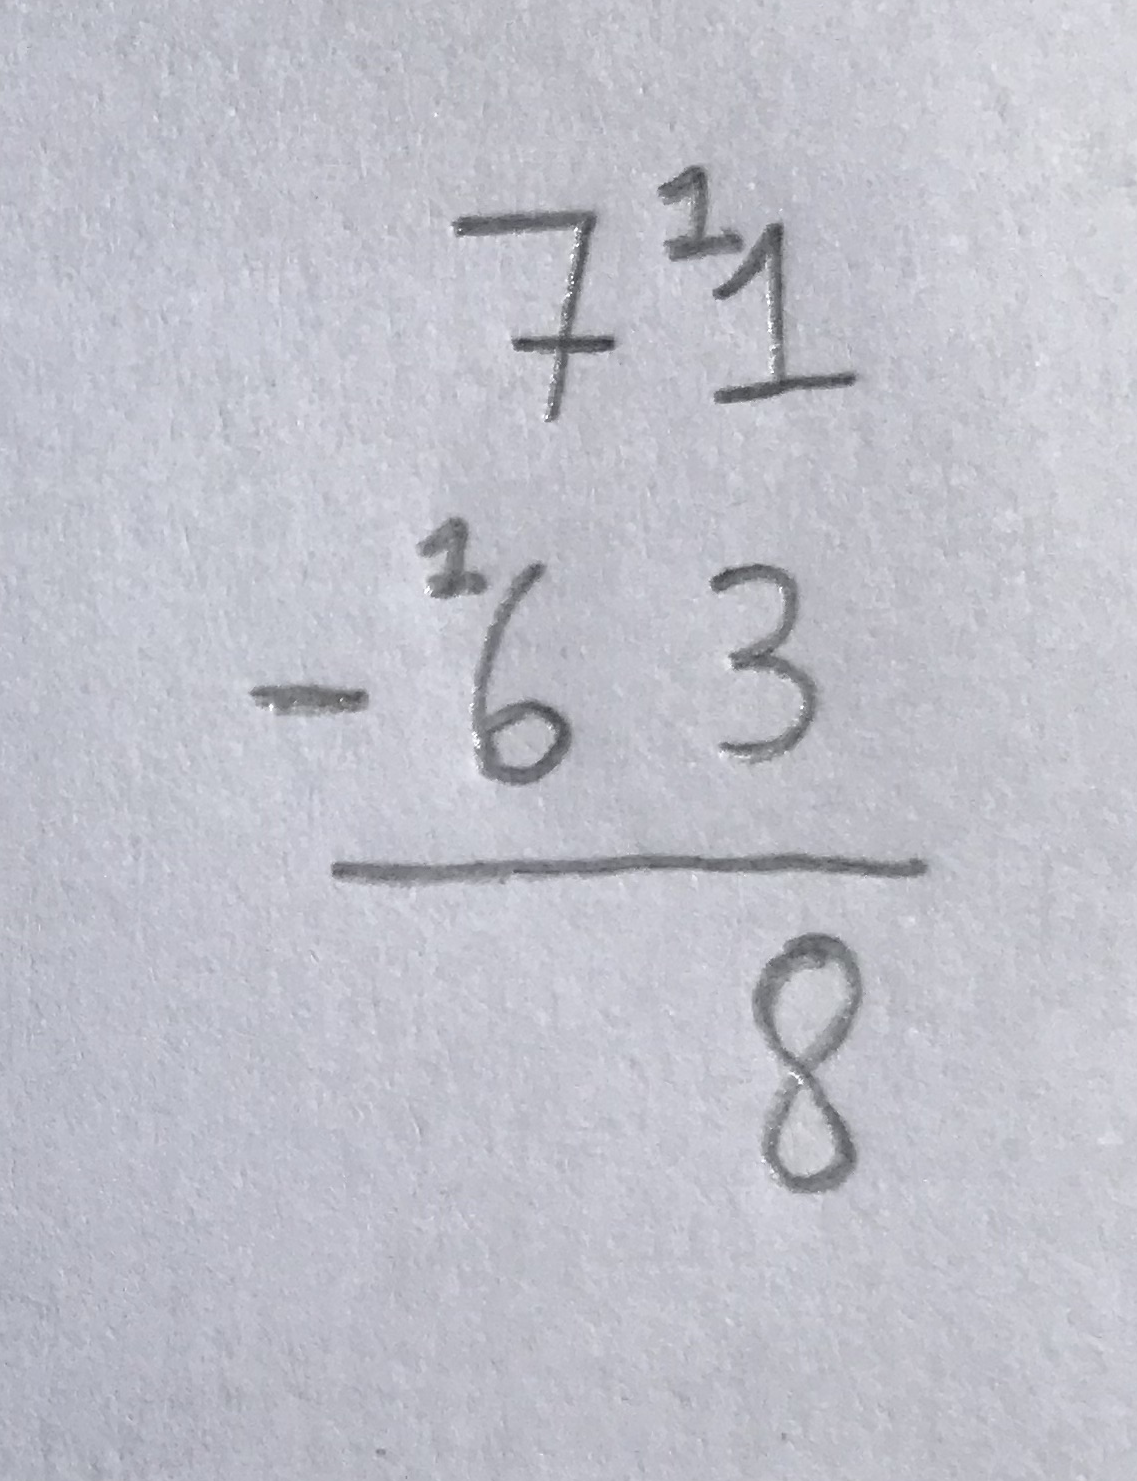 7 ¹1
- ¹6 3
8